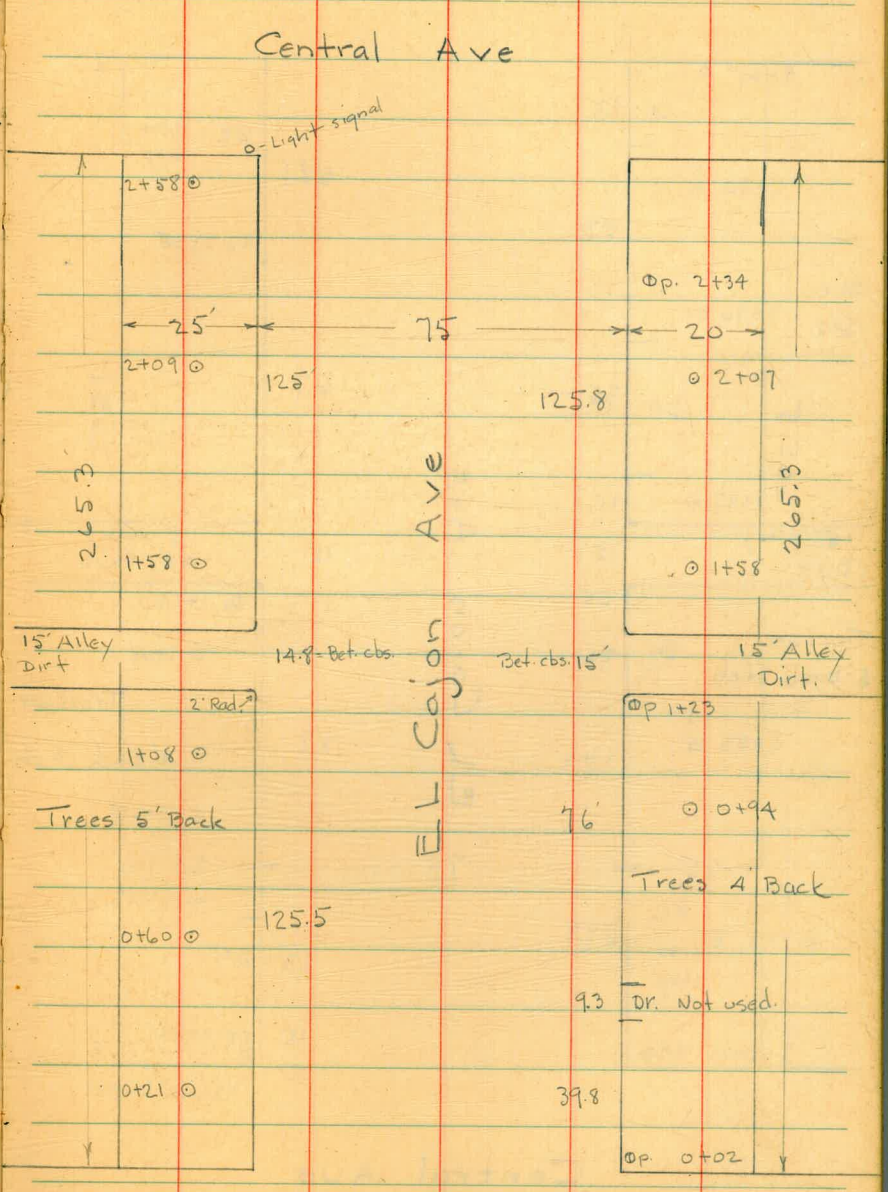 Central Ave
o-Light signal
2+58
Op. 2+34
25' 75 20
2+09
125'
2+07
125.8
265.3
EL Cajon Ave
265.3
1+58
1+58
15' Alley
Dirt
14.8-Bet. cbs.
Bet. cbs. 15'
15' Alley
Dirt.
2' Rad.
Op 1+23
1+08
0+94
Trees 5' Back
76'
Trees 4' Back
125.5
0+60
9.3 Dr. Not used.
0+21
39.8
Op. 0+02